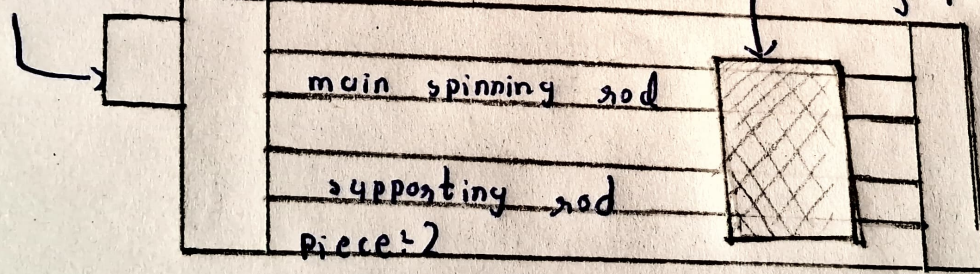 main spinning rod
supporting rod
piece:2